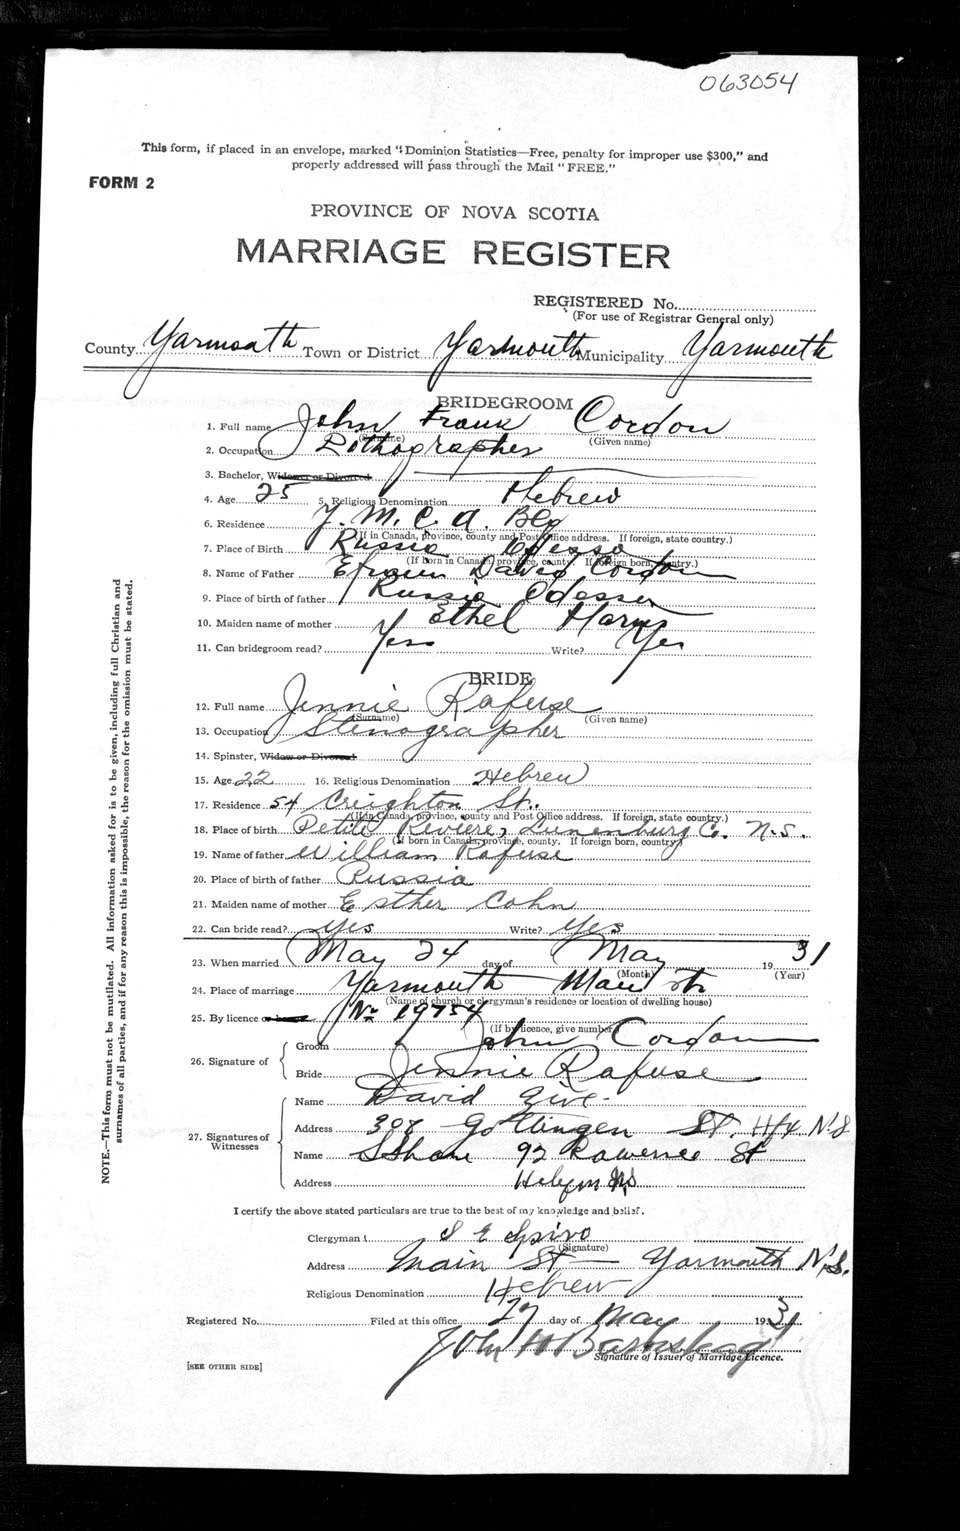 063054
This form, if placed in an envelope, marked "Dominion Statistics—Free, penalty for improper use $300," and
properly addressed will pass through the Mail "FREE."
FORM 2
PROVINCE OF NOVA SCOTIA
MARRIAGE REGISTER
REGISTERED No.
(For use of Registrar General only)
County Yarmouth Town or District Yarmouth Municipality Yarmouth
BRIDEGROOM
1. Full name John Frank Cordon
(Surname) (Given name)
2. Occupation Lithographer
3. Bachelor, Widower or Divorced
4. Age 25 5. Religious Denomination Hebrew
6. Residence Y.M.C.A. Blg
(If in Canada, province, county and Post Office address. If foreign, state country.)
7. Place of Birth Russia Odessa
(If born in Canada, province, county. If foreign born, country.)
8. Name of Father David Cordon
9. Place of birth of father Russia Odessa
10. Maiden name of mother Ethel
11. Can bridegroom read? Yes Write? Yes
BRIDE
12. Full name Jennie Rafuse
(Surname) (Given name)
13. Occupation Stenographer
14. Spinster, Widow or Divorced
15. Age 22 16. Religious Denomination Hebrew
17. Residence 54 Creighton St.
(If in Canada, province, county and Post Office address. If foreign, state country.)
18. Place of birth Petite Riviere, Lunenburg Co. N.S.
(If born in Canada, province, county. If foreign born, country)
19. Name of father William Rafuse
20. Place of birth of father Russia
21. Maiden name of mother Esther Cohn
22. Can bride read? Yes Write? Yes
23. When married May 24 day of May 1931
(Month) (Year)
24. Place of marriage Yarmouth Main St
(Name of church or clergyman's residence or location of dwelling house)
25. By licence or banns No 19754
(If by licence, give number)
26. Signature of
Groom John Cordon
Bride Jennie Rafuse
27. Signatures of Witnesses
Name David
Address 308 Gottingen St. Hfx N.S
Name 92 St
Address
I certify the above stated particulars are true to the best of my knowledge and belief.
Clergyman S E Spiro
(Signature)
Address Main St — Yarmouth N.S.
Religious Denomination Hebrew
Registered No. Filed at this office 27 day of May 1931
John H
Signature of Issuer of Marriage Licence.
[SEE OTHER SIDE]
NOTE.—This form must not be mutilated. All information asked for is to be given, including full Christian and
surnames of all parties, and if for any reason this is impossible, the reason for the omission must be stated.